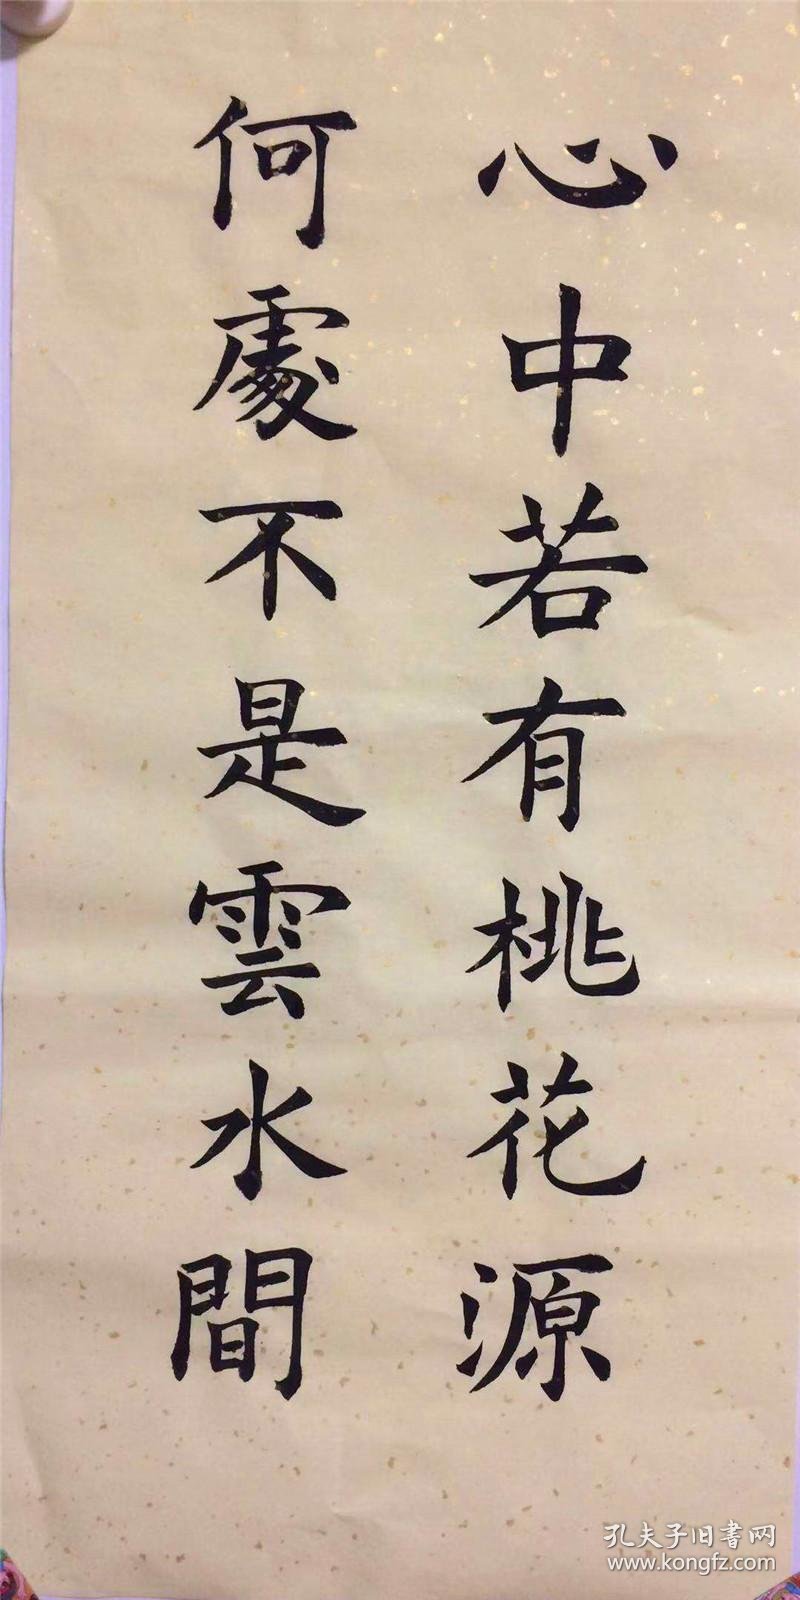 心中若有桃花源
何處不是雲水間
孔夫子旧書网
www.kongfz.com